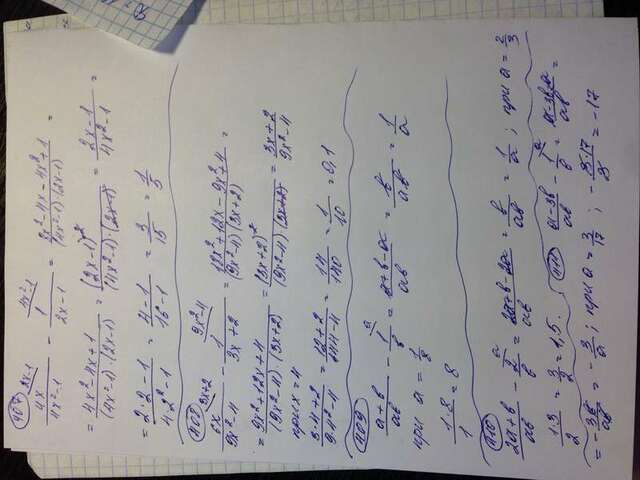 407
2x-1 4x²-1
4x/(4x²-1) - 1/(2x-1) = (8x²-4x-4x²+1)/((4x²-1)·(2x-1)) =
= (4x²-4x+1)/((4x²-1)·(2x-1)) = (2x-1)²/((4x²-1)·(2x-1)) = (2x-1)/(4x²-1) =
= (2·2-1)/(4·2²-1) = (4-1)/(16-1) = 3/15 = 1/5
408
3x+2 9x²-4
6x/(9x²-4) - 1/(3x+2) = (18x²+12x-9x²+4)/((9x²-4)(3x+2)) =
= (9x²+12x+4)/((9x²-4)·(3x+2)) = (3x+2)²/((9x²-4)(3x+2)) = (3x+2)/(9x²-4)
при x=4
(3·4+2)/(9·4²-4) = (12+2)/(144-4) = 14/140 = 1/10 = 0,1
409
a
(a+b)/ab - 1/b = (a+b-a)/ab = b/ab = 1/a
при a = 1/8
1·8/1 = 8
410
a
(2a+b)/ab - 2/b = (2a+b-2a)/ab = b/ab = 1/a ; при a = 2/3
1·3/2 = 3/2 = 1,5. 411 (a-3b)/ab - 1/b a = (a-3b-a)/ab =
= -3b/ab = -3/a ; при a = 3/17 ; -3·17/3 = -17